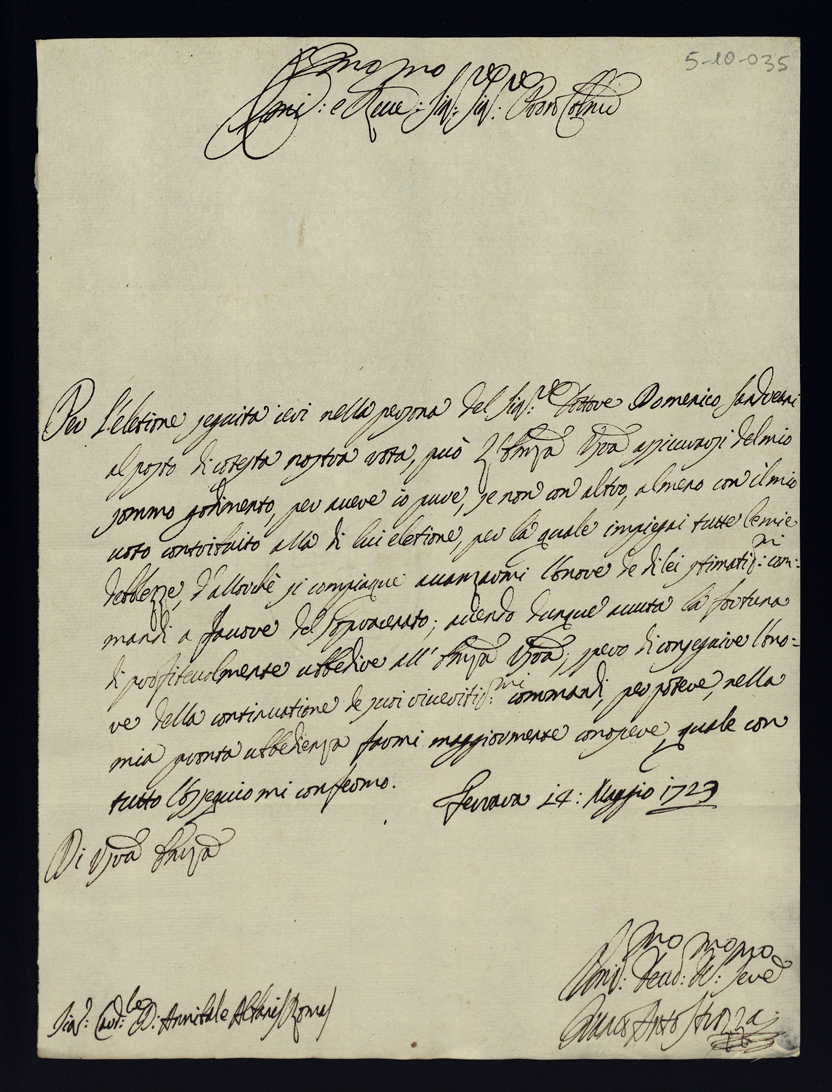 5-10-035
Emi:mo e Reve:mo Sig:re Sig:re Pron Colmo
Per l'eletione seguita ieri nella persona del Sig:re Dottore Domenico
al posto di cotesta nostra rota, può l'Emza Vra assicurarsi del mio
sommo godimento, per avere io pure, se non con altro, almeno con il mio
voto contribuito alla di lui eletione, per la quale impiegai tutte le mie
debblezze, d'allorchè si compiaque avanzarmi l'onore de di lei stimatis:mi com=
mandi a favore del sopracenato; avendo dunque avuta la fortuna
di profitevolmente ubbedire all'Emza Vra; spero di conseguire l'ono=
re della continuatione de suoi riveritis:mi commandi, per potere, nella
mia pronta ubbedienza farmi maggiormente conoscere, quale con
tutto l'ossequio mi confermo. Ferrara 14: Maggio 1723
Di Vra Emza
Umi:mo Devo:mo Ob:mo Serve
Sig:r Card:le D: Annibale Albani (Roma)
Strozza